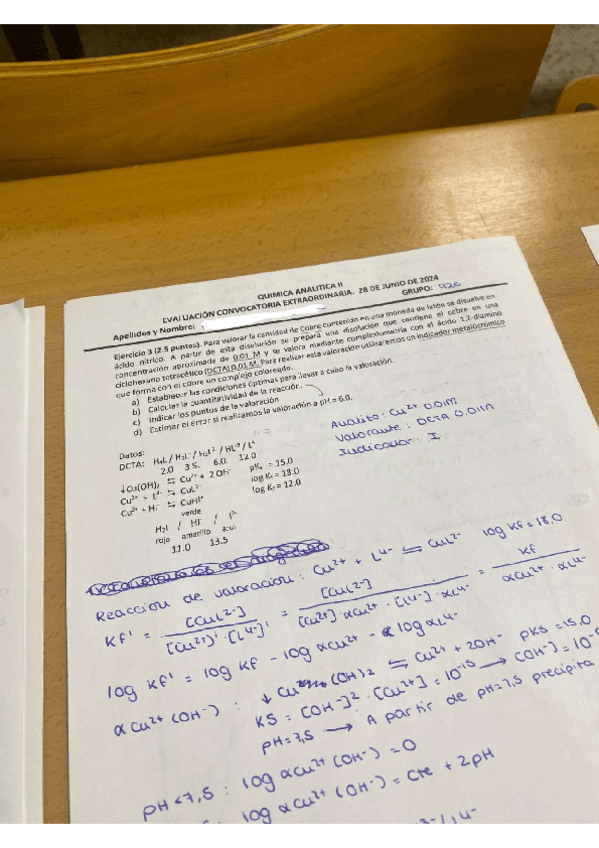 QUIMICA ANALITICA II
EVALUACIÓN CONVOCATORIA EXTRAORDINARIA. 28 DE JUNIO DE 2024
Apellidos y Nombre: GRUPO: 926
Ejercicio 3 (2.5 puntos). Para valorar la cantidad de Cobre contenido en una moneda de latón se disuelve en
ácido nítrico. A partir de esta disolución se prepara una disolución que contiene el cobre en una
concentración aproximada de 0.01 M y se valora mediante complexometría con el ácido 1,2-diamino
ciclohexano tetracético (DCTA) 0,01 M. Para realizar esta valoración utilizaremos un indicador metalocrómico
que forma con el cobre un complejo coloreado.
a) Establecer las condiciones óptimas para llevar a cabo la valoración.
b) Calcular la cuantitatividad de la reacción.
c) Indicar los puntos de la valoración
d) Estimar el error si realizamos la valoración a pH = 6.0.
Analito: Cu2+ 0.01M
Valorante: DCTA 0.01M
Indicador: I
Datos:
DCTA: H4L / H3L- / H2L2- / HL3- / L4-
2.0 3.5 6.0 12.0
↓Cu(OH)2 ⇆ Cu2+ + 2 OH- pKs = 15.0
Cu2+ + L4- ⇆ CuL2- log Kf = 18.0
Cu2+ + HI- ⇆ CuHI+ log Kf = 12.0
verde
H2I / HI- / I2-
rojo amarillo azul
11.0 13.5
Reaccion de valoracion: Cu2+ + L4- ⇆ CuL2- log Kf = 18.0
Kf' = [CuL2-] / [Cu2+]' · [L4-]' = [CuL2-] / [Cu2+] · αCu2+ · [L4-] · αL4- = Kf / αCu2+ · αL4-
log Kf' = log Kf - log αCu2+ - log αL4-
αCu2+(OH-) : ↓ Cu (OH)2 ⇆ Cu2+ + 2OH- pKs = 15.0
KS = [OH-]2 · [Cu2+] = 10-15 → [OH-] = 10-6
pH = 7,5 → A partir de pH = 7,5 precipita
pH < 7,5 : log αCu2+ (OH-) = 0
log αCu2+ (OH-) = cte + 2pH